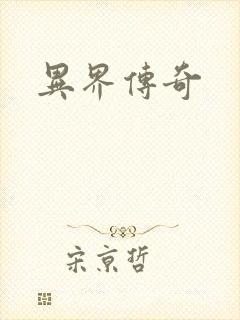 異界傳奇
宋京哲